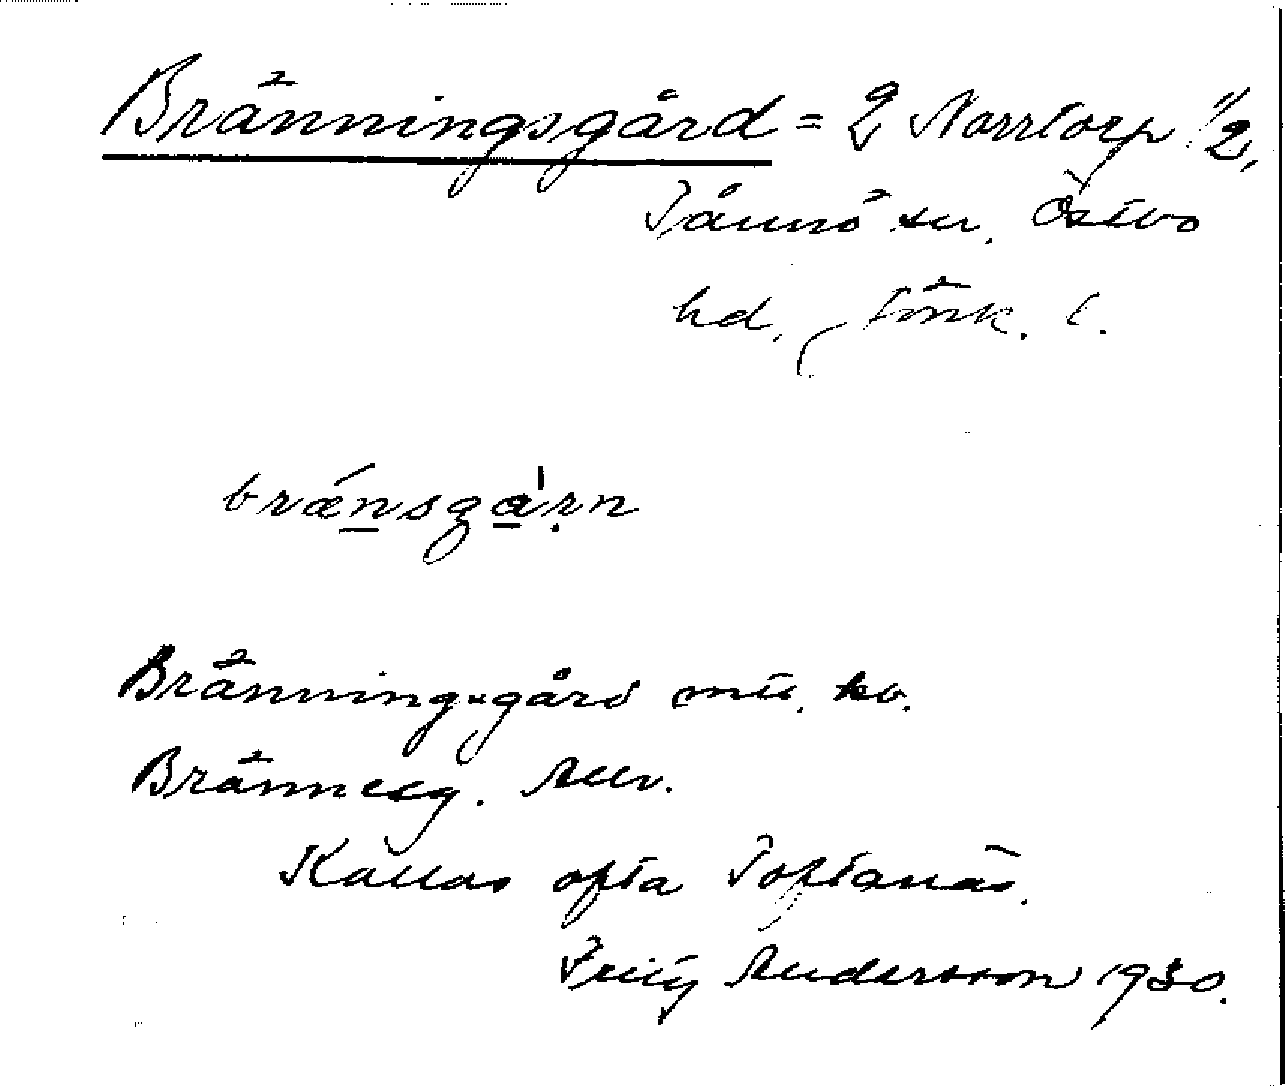 Bränningsgård = 2 Norrtorp 1/2,
Tånnö sn, Östbo
hd, Jönk. l.
brǽnsgárn
Bränningsgård mtl. kv.
Brännesg.
Kallas ofta Toftanäs.
Fritz Andersson 1930.